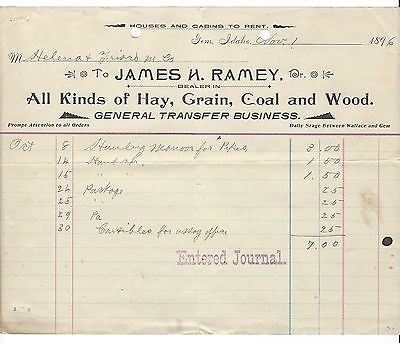 HOUSES AND CABINS TO RENT.
Gem, Idaho, Nov. 1 1896
M Helena & Frisco M Co
To JAMES H. RAMEY, Dr.
DEALER IN
All Kinds of Hay, Grain, Coal and Wood.
GENERAL TRANSFER BUSINESS.
Prompt Attention to all Orders Daily Stage Between Wallace and Gem
Oct 8 for 3.00
14 1.50
15 " " 1.50
24 Package 25
25 " 25
29 25
30 Crusibles for assay office 25
7.00
Entered Journal.